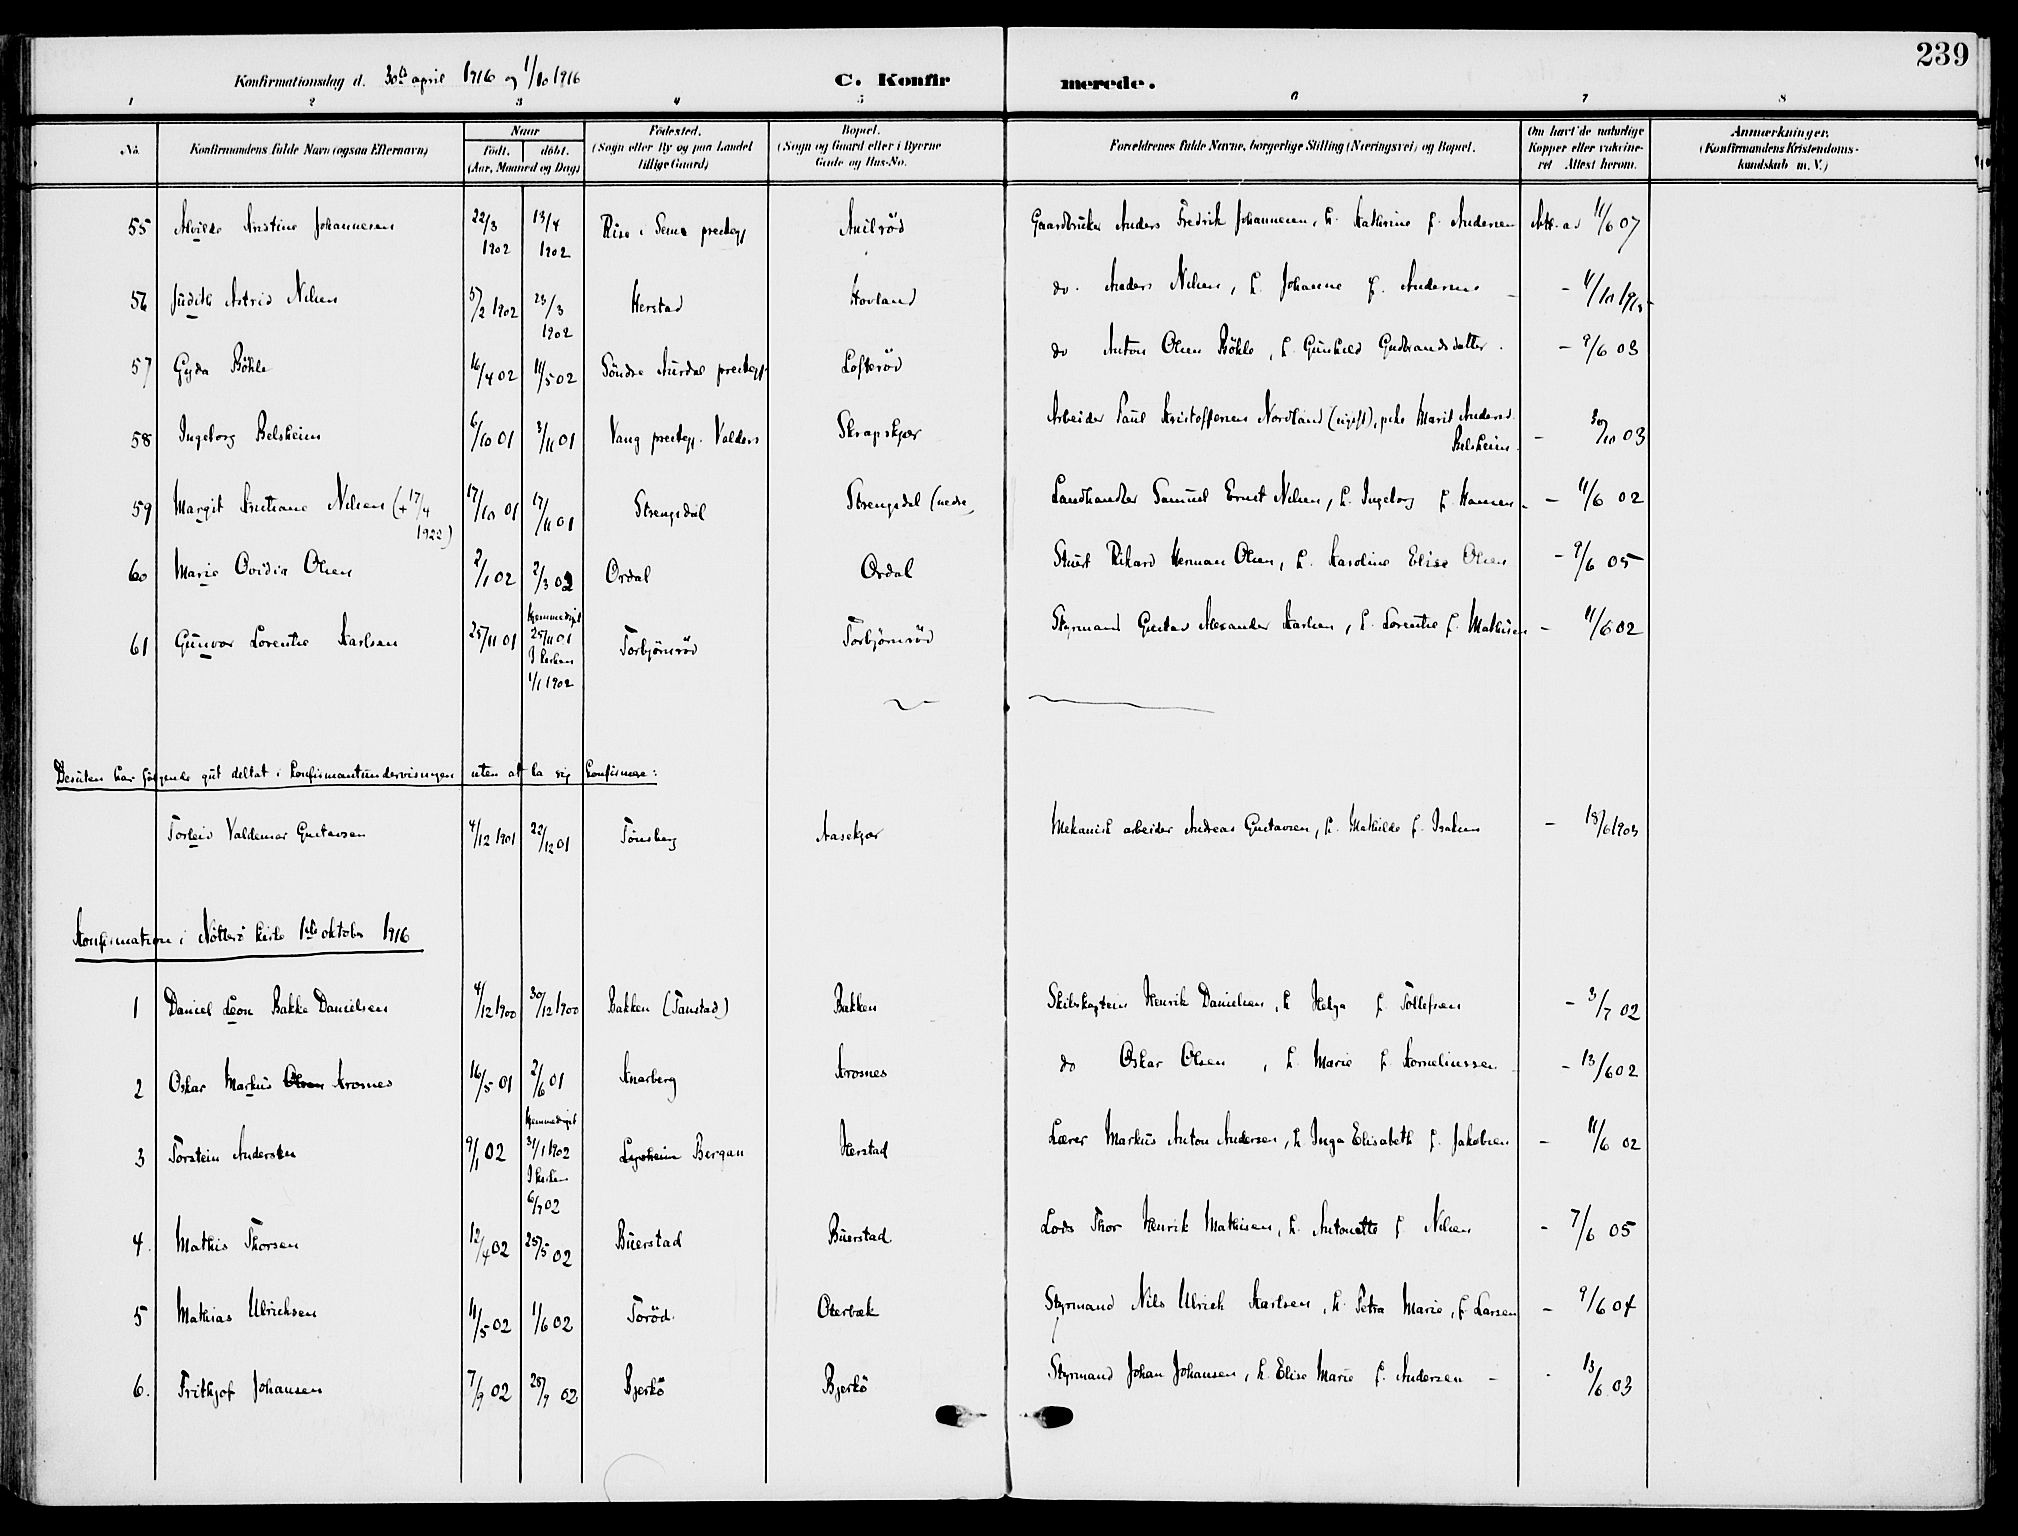 239
Konfirmationsdag d. 30te april 1916 og 1/10 1916 C. Konfirmerede.
1 2 3 4 5 6 7 8
No. Konfirmandens fulde Navn (ogsaa Efternavn) Naar født. døbt. (Aar, Maaned og Dag) Fødested. (Sogn eller By og paa Landet tillige Gaard) Bopæl. (Sogn og Gaard eller i Byerne Gade og Hus-No. Forældrenes fulde Navne, borgerlige Stilling (Næringsvei) og Bopæl. Om havt de naturlige Kopper eller vakcineret Attest herom. Anmærkninger. (Konfirmandens Kristendomskundskab m. V.)
55 Alvilde Kristine Johannesen 22/3 1902 13/4 1902 Rise i Sems prestegj Knilrød Gaardbruker Anders Fredrik Johannesen, h. Kathrine f. Andersen Att. ad 11/6 07
56 Judith Astrid Nilsen 5/2 1902 23/3 1902 Herstad Hovland do. Anders Nilsen, h. Johanne f. Andersen - 4/10 1915
57 Gyda Bøhle 16/4 02 11/5 02 Søndre Aurdal prestegj. Lofterød do Anton Olsen Bøhle, h. Gunhild Gudbrandsdatter. - 9/6 03
58 Ingeborg Belsheim 6/10 01 3/11 01 Vang prestegj. Valders Skrapskjær Arbeider Paul Kristoffersen Nordland (ugift), pike Marit Andersd. Belsheim. - 30/10 03
59 Margit Kristiane Nilsen (+ 17/4 1922) 17/10 01 17/11 01 Strengsdal Strengsdal (nedre) Landhandler Samuel Ernst Nilsen, h. Ingeborg f. Hansen - 11/6 02
60 Marie Ovidia Olsen 2/1 02 2/3 02 Ordal Ordal Stuert Rikard Herman Olsen, h. Karoline Elise Olsen - 9/6 05
61 Gunvor Lorentse Karlsen 25/11 01 Hjemmedøpt 25/11 01 I kirken 1/1 1902 Torbjørnrød Torbjørnrød Styrmand Gustav Alexander Karlsen, h. Lorentse f. Mathisen - 11/6 02
Desuten har følgende gut deltat i konfirmantundervisningen uten at la sig konfirmere:
Torleiv Valdemar Gustavsen 4/12 1901 22/12 01 Tønsberg Aasekjær Mekanisk arbeider Andreas Gustavsen, h. Mathilde f. Isaksen - 18/6 1903
Konfirmation i Nøtterø kirke 1ste oktober 1916
1 Daniel Leon Bakke Danielsen 4/12 1900 30/12 1900 Bakken (Tanstad) Bakken Skibskaptein Henrik Danielsen, h Helga f. Tollefsen - 3/7 02
2 Oskar Markus Olsen Krosnes 16/5 01 2/6 01 Knarberg Krosnes do Oskar Olsen, h. Marie f. Korneliussen - 13/6 02
3 Torstein Andersen 9/1 02 Hjemmedøpt 31/1 1902 I kirken 6/7 02 Lysheim Bergan Herstad Lærer Markus Anton Andersen, h. Inga Elisabeth f. Jakobsen - 11/6 02
4. Mathis Thorsen 12/4 02 25/5 02 Buerstad Buerstad Lods Thor Henrik Mathisen, h. Antonette f Nilsen - 7/6 05
5 Mathias Ulrichsen 11/5 02 1/6 02 Torød. Oterbæk Styrmand Nils Ulrich Karlsen, h. Petra Marie, f. Larsen - 9/6 04
6. Frithjof Johansen 7/9 02 28/9 02 Bjerkø Bjerkø Styrmand Johan Johansen, h. Elise Marie f. Andersen - 13/6 03